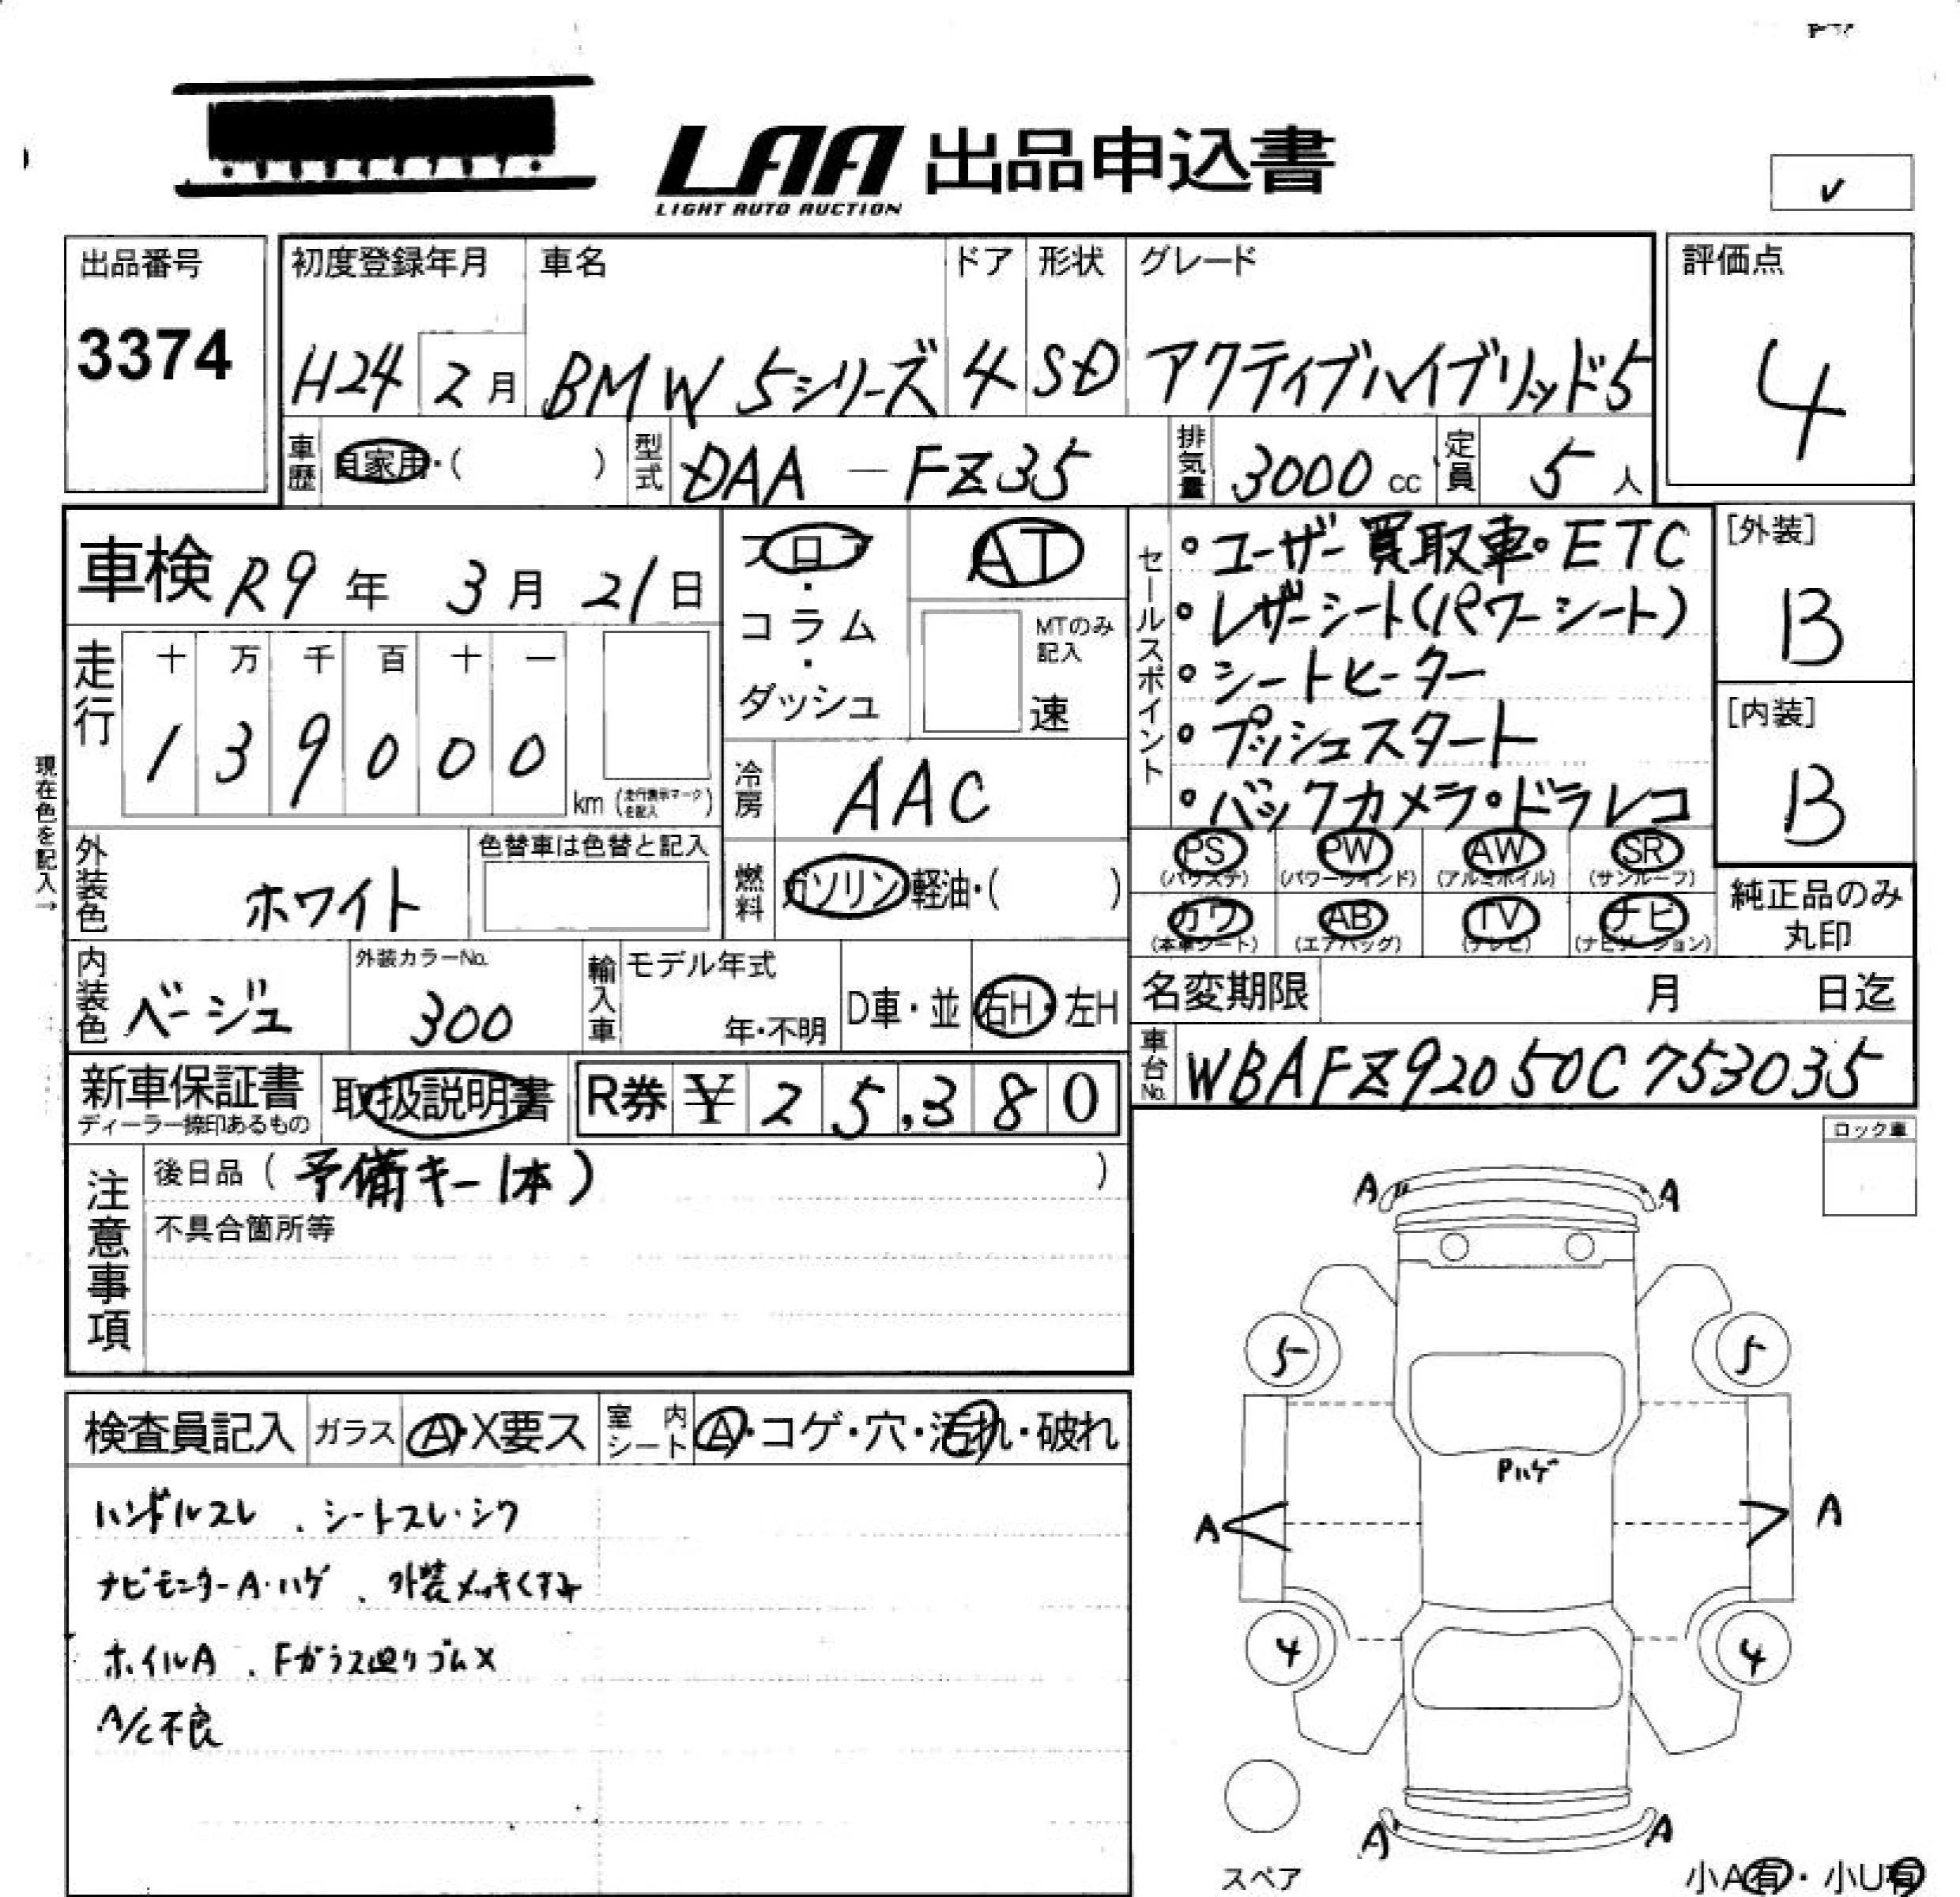 LAA 出品申込書
LIGHT AUTO AUCTION
✓
出品番号
3374
初度登録年月
H24 2月
車名
BMW 5シリーズ
ドア
4
形状
SD
グレード
アクティブハイブリッド5
評価点
4
車歴 自家用・( )
型式 DAA-FZ35
排気量 3000cc
定員 5人
車検 R9年 3月 21日
走行
十 万 千 百 十 一
1 3 9 0 0 0 km (走行表示マークを記入)
現在色を記入→
外装色
ホワイト
色替車は色替と記入
内装色
ベージュ
外装カラーNo.
300
フロア・コラム・ダッシュ
AT
MTのみ記入
速
冷房 AAC
燃料 ガソリン・軽油・( )
輸入車
モデル年式
年・不明
D車・並
右H・左H
セールスポイント
・ユーザー買取車・ETC
・レザーシート(パワーシート)
・シートヒーター
・プッシュスタート
・バックカメラ・ドラレコ
[外装]
B
[内装]
B
PS PW AW SR
(パワステ) (パワーウインド) (アルミホイル) (サンルーフ)
カワ AB TV ナビ
(本革シート) (エアバッグ) (テレビ) (ナビゲーション)
純正品のみ
丸印
名変期限 月 日迄
車台No. WBAFZ92050C753035
新車保証書
ディーラー捺印あるもの
取扱説明書
R券 ¥25,380
注意事項
後日品 (予備キー1本) )
不具合箇所等
ロック車
検査員記入 ガラス A・X要ス
室内シート A・コゲ・穴・汚れ・破れ
ハンドルスレ、シートスレ・シワ
ナビモニターA・ハゲ、外装メッキくすみ
ホイルA、Fガラス廻りゴムX
A/C不良
A A
5 5
Pハゲ
A A
4 4
A A
スペア
小A有・小U有